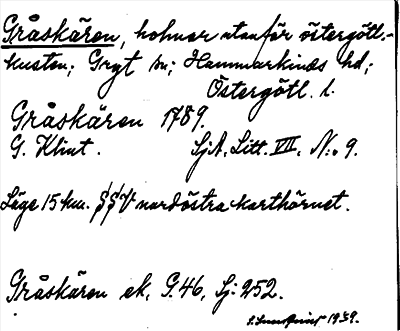 Gråskären, holmar utanför östergötl.-
kusten; Gryt sn; Hammarkinds hd;
Östergötl. l.
Gråskären 1789.
G. Klint. SjA. Litt. VII, N:o 9.
Läge 15 km. SSV nordöstra karthörnet.
Gråskären ek. G. 46, Sj: 252.
1939.